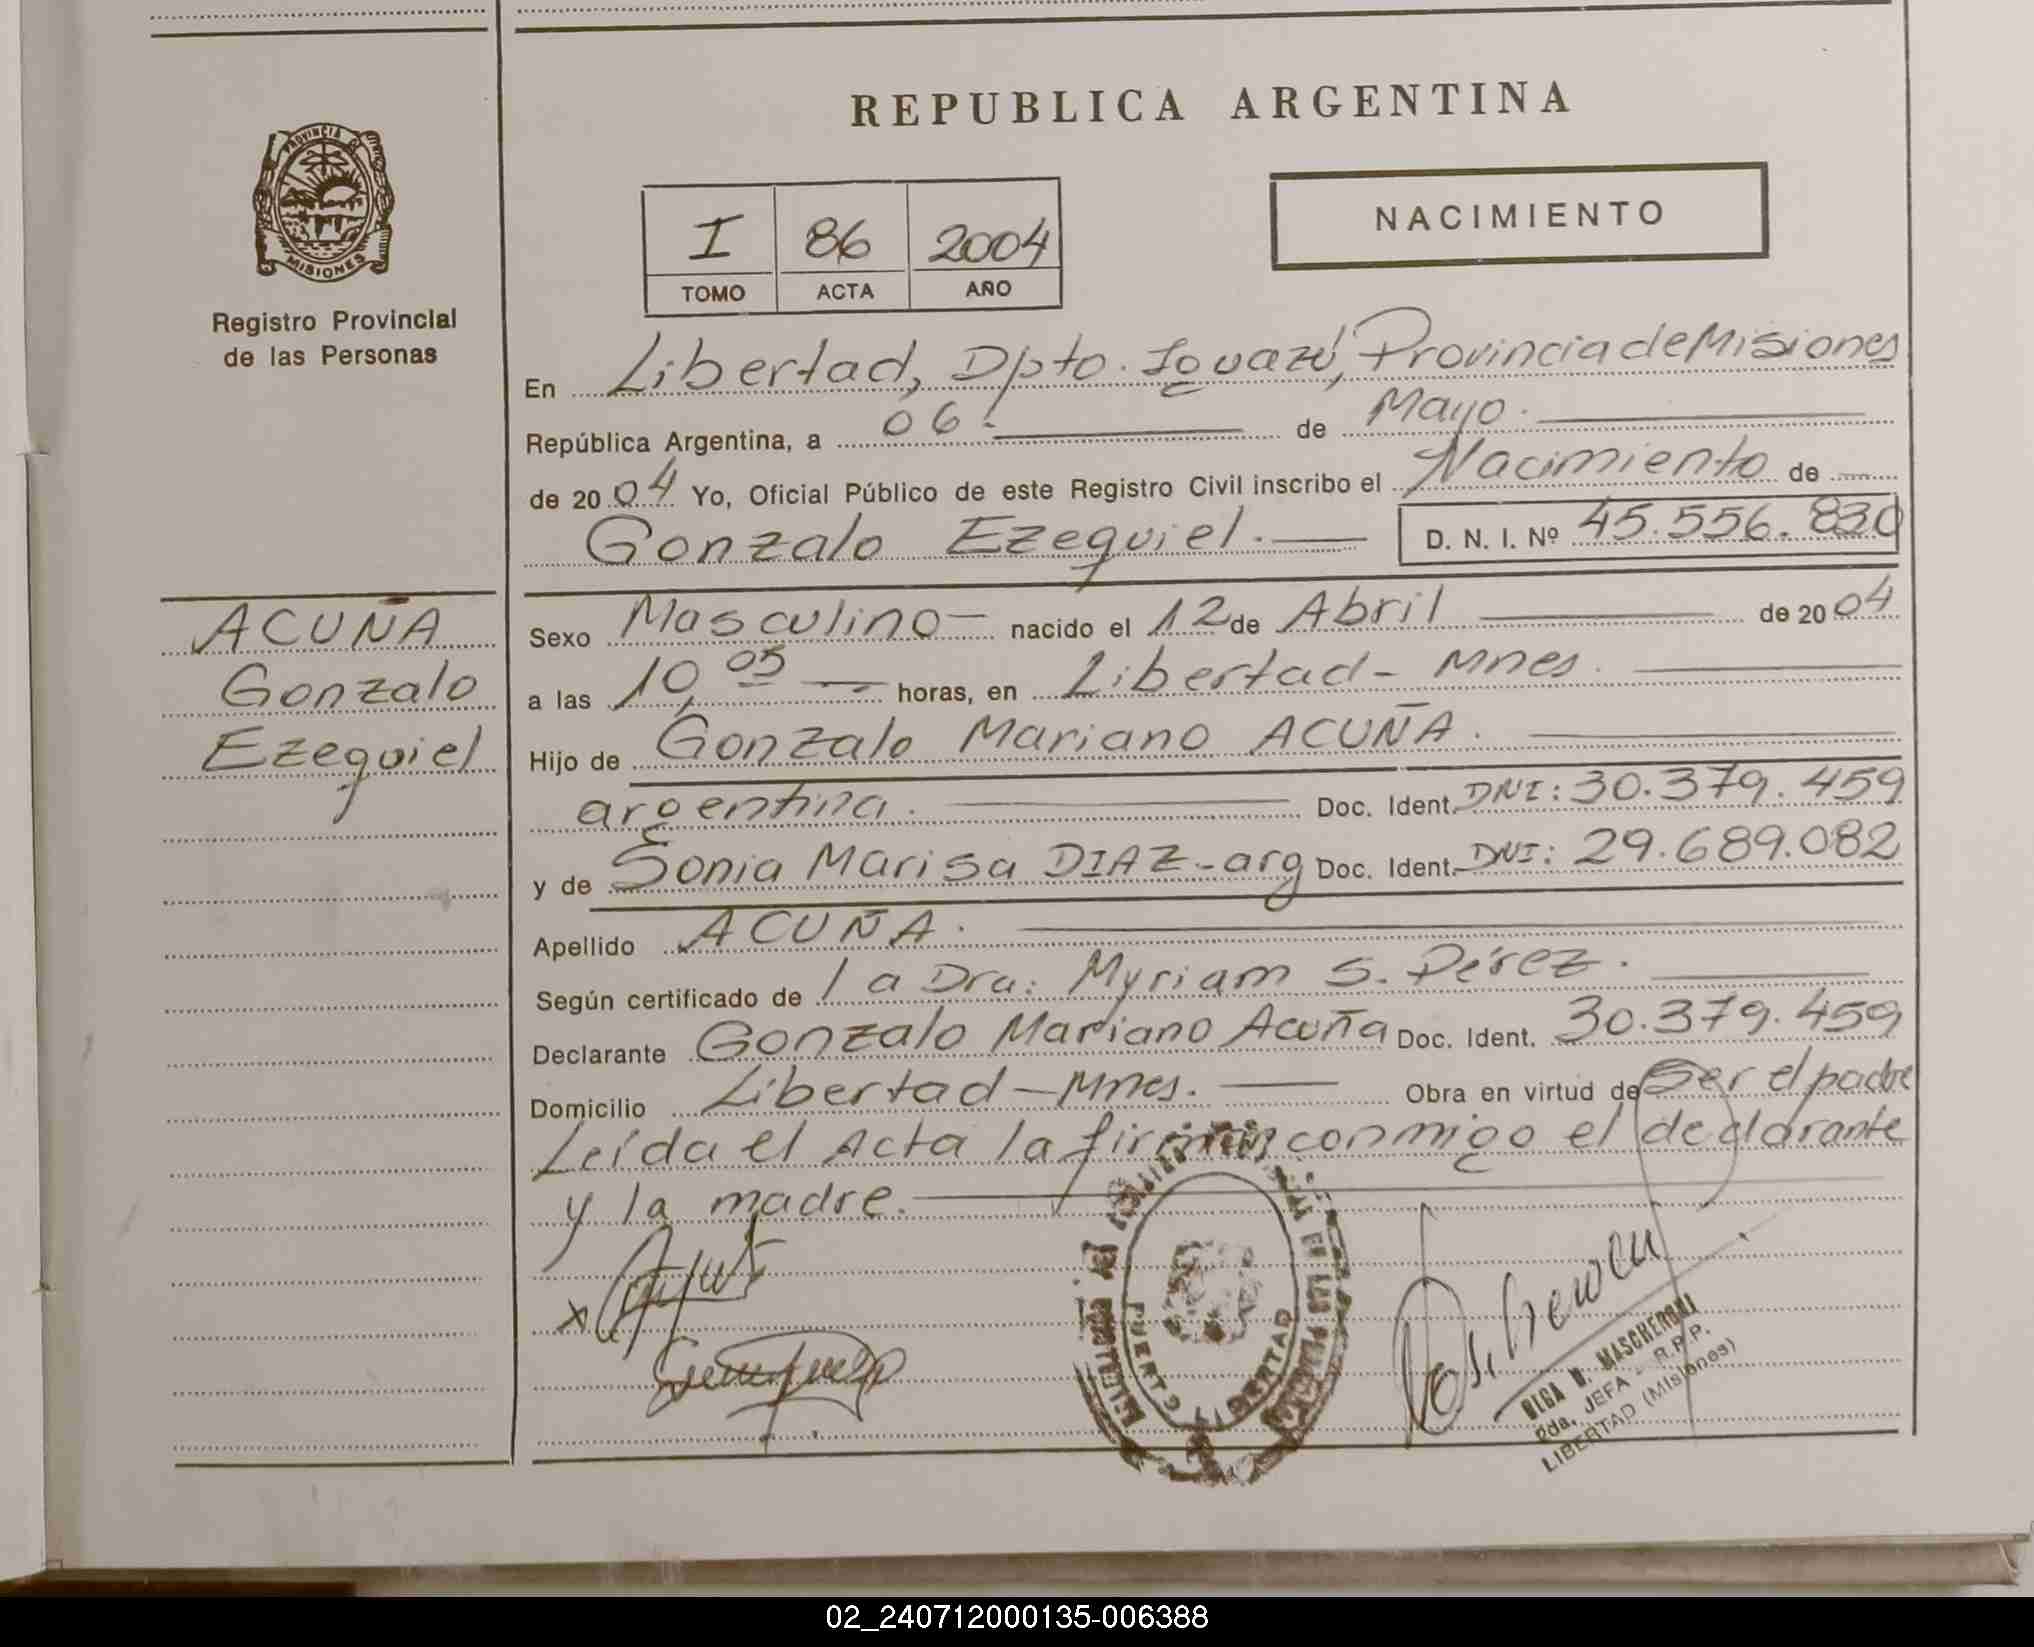 REPUBLICA ARGENTINA
PROVINCIA DE
MISIONES
Registro Provincial
de las Personas
NACIMIENTO
I 86 2004
TOMO ACTA AÑO
En Libertad, Dpto. Iguazú, Provincia de Misiones
República Argentina, a 06.- de Mayo.
de 2004 Yo, Oficial Público de este Registro Civil inscribo el Nacimiento de
Gonzalo Ezequiel.- D. N. I. Nº 45.556.830
ACUÑA
Gonzalo
Ezequiel
Sexo Masculino- nacido el 12 de Abril de 2004
a las 10,05 horas, en Libertad- Mnes.
Hijo de Gonzalo Mariano ACUÑA.
argentina. Doc. Ident. DNI: 30.379.459
y de Sonia Marisa DIAZ-arg Doc. Ident. DNI: 29.689.082
Apellido ACUÑA.
Según certificado de la Dra: Myriam S. Pérez.
Declarante Gonzalo Mariano Acuña Doc. Ident. 30.379.459
Domicilio Libertad-Mnes. Obra en virtud de Ser el padre
Leída el Acta la firman conmigo el declarante
y la madre.
PUERTO LIBERTAD
OLGA N. MASCHERONI
2da. JEFA - R.P.P.
LIBERTAD (Misiones)
02_240712000135-006388